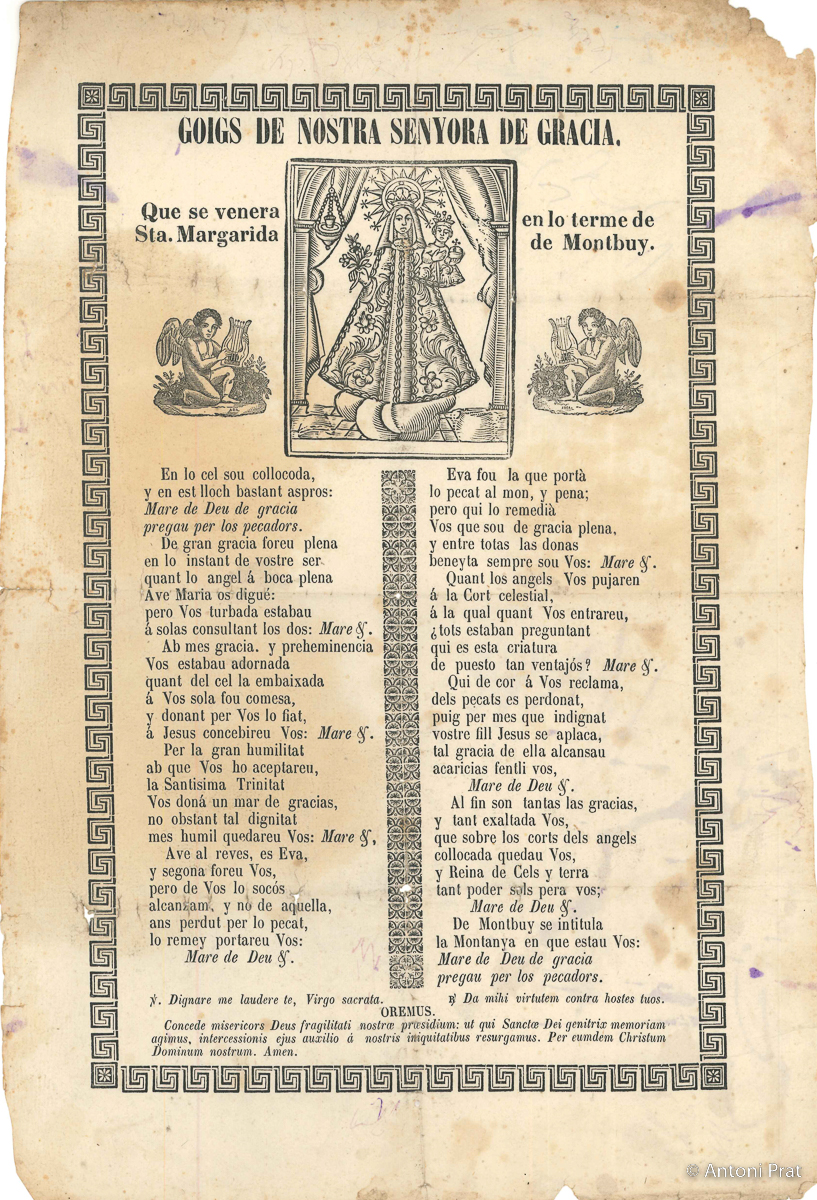 GOIGS DE NOSTRA SENYORA DE GRACIA.
Que se venera en lo terme de
Sta. Margarida de Montbuy.
En lo cel sou collocoda,
y en est lloch bastant aspros:
Mare de Deu de gracia
pregau per los pecadors.
De gran gracia foreu plena
en lo instant de vostre ser
quant lo angel á boca plena
Ave Maria os digué:
pero Vos turbada estabau
á solas consultant los dos: Mare &.
Ab mes gracia. y preheminencia
Vos estabau adornada
quant del cel la embaixada
á Vos sola fou comesa,
y donant per Vos lo fiat,
á Jesus concebireu Vos: Mare &.
Per la gran humilitat
ab que Vos ho aceptareu,
la Santisima Trinitat
Vos doná un mar de gracias,
no obstant tal dignitat
mes humil quedareu Vos: Mare &,
Ave al reves, es Eva,
y segona foreu Vos,
pero de Vos lo socós
alcanzam, y no de aquella,
ans perdut per lo pecat,
lo remey portareu Vos:
Mare de Deu &.
Eva fou la que portà
lo pecat al mon, y pena;
pero qui lo remedià
Vos que sou de gracia plena,
y entre totas las donas
beneyta sempre sou Vos: Mare &.
Quant los angels Vos pujaren
á la Cort celestial,
á la qual quant Vos entrareu,
¿tots estaban preguntant
qui es esta criatura
de puesto tan ventajós? Mare &.
Qui de cor á Vos reclama,
dels pecats es perdonat,
puig per mes que indignat
vostre fill Jesus se aplaca,
tal gracia de ella alcansau
acaricias fentli vos,
Mare de Deu &.
Al fin son tantas las gracias,
y tant exaltada Vos,
que sobre los corts dels angels
collocada quedau Vos,
y Reina de Cels y terra
tant poder sols pera vos;
Mare de Deu &.
De Montbuy se intitula
la Montanya en que estau Vos:
Mare de Deu de gracia
pregau per los pecadors.
℣. Dignare me laudere te, Virgo sacrata. ℟ Da mihi virtutem contra hostes tuos.
OREMUS.
Concede misericors Deus fragilitati nostræ præsidium: ut qui Sanctæ Dei genitrix memoriam
agimus, intercessionis ejus auxilio á nostris iniquitatibus resurgamus. Per eumdem Christum
Dominum nostrum. Amen.
© Antoni Prat